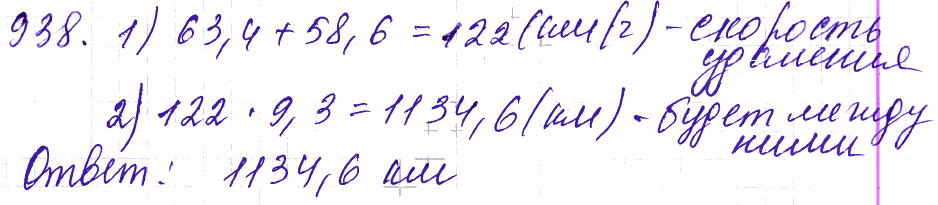 938. 1) 63,4 + 58,6 = 122 (км/ч) - скорость
удаления
2) 122 · 9,3 = 1134,6 (км) - будет между
ними
Ответ: 1134,6 км